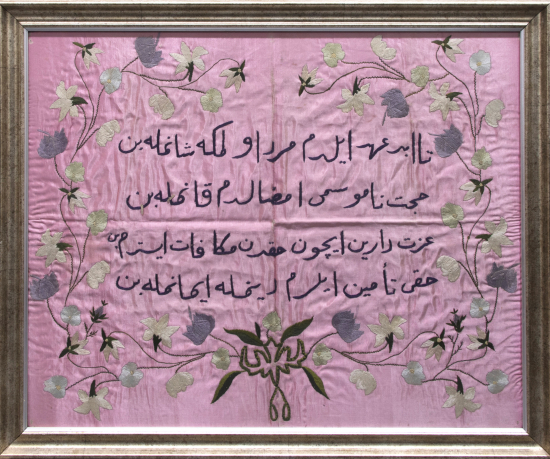 تا ابد عهد ایلدم مرد اولمكه شانمله بن
حجت ناموسمی امضالدم قانمله بن
عزت دارین ایچون حقدن مكافات ایسترم بن
حقی تأمین ایلرم دینمله ایمانمله بن